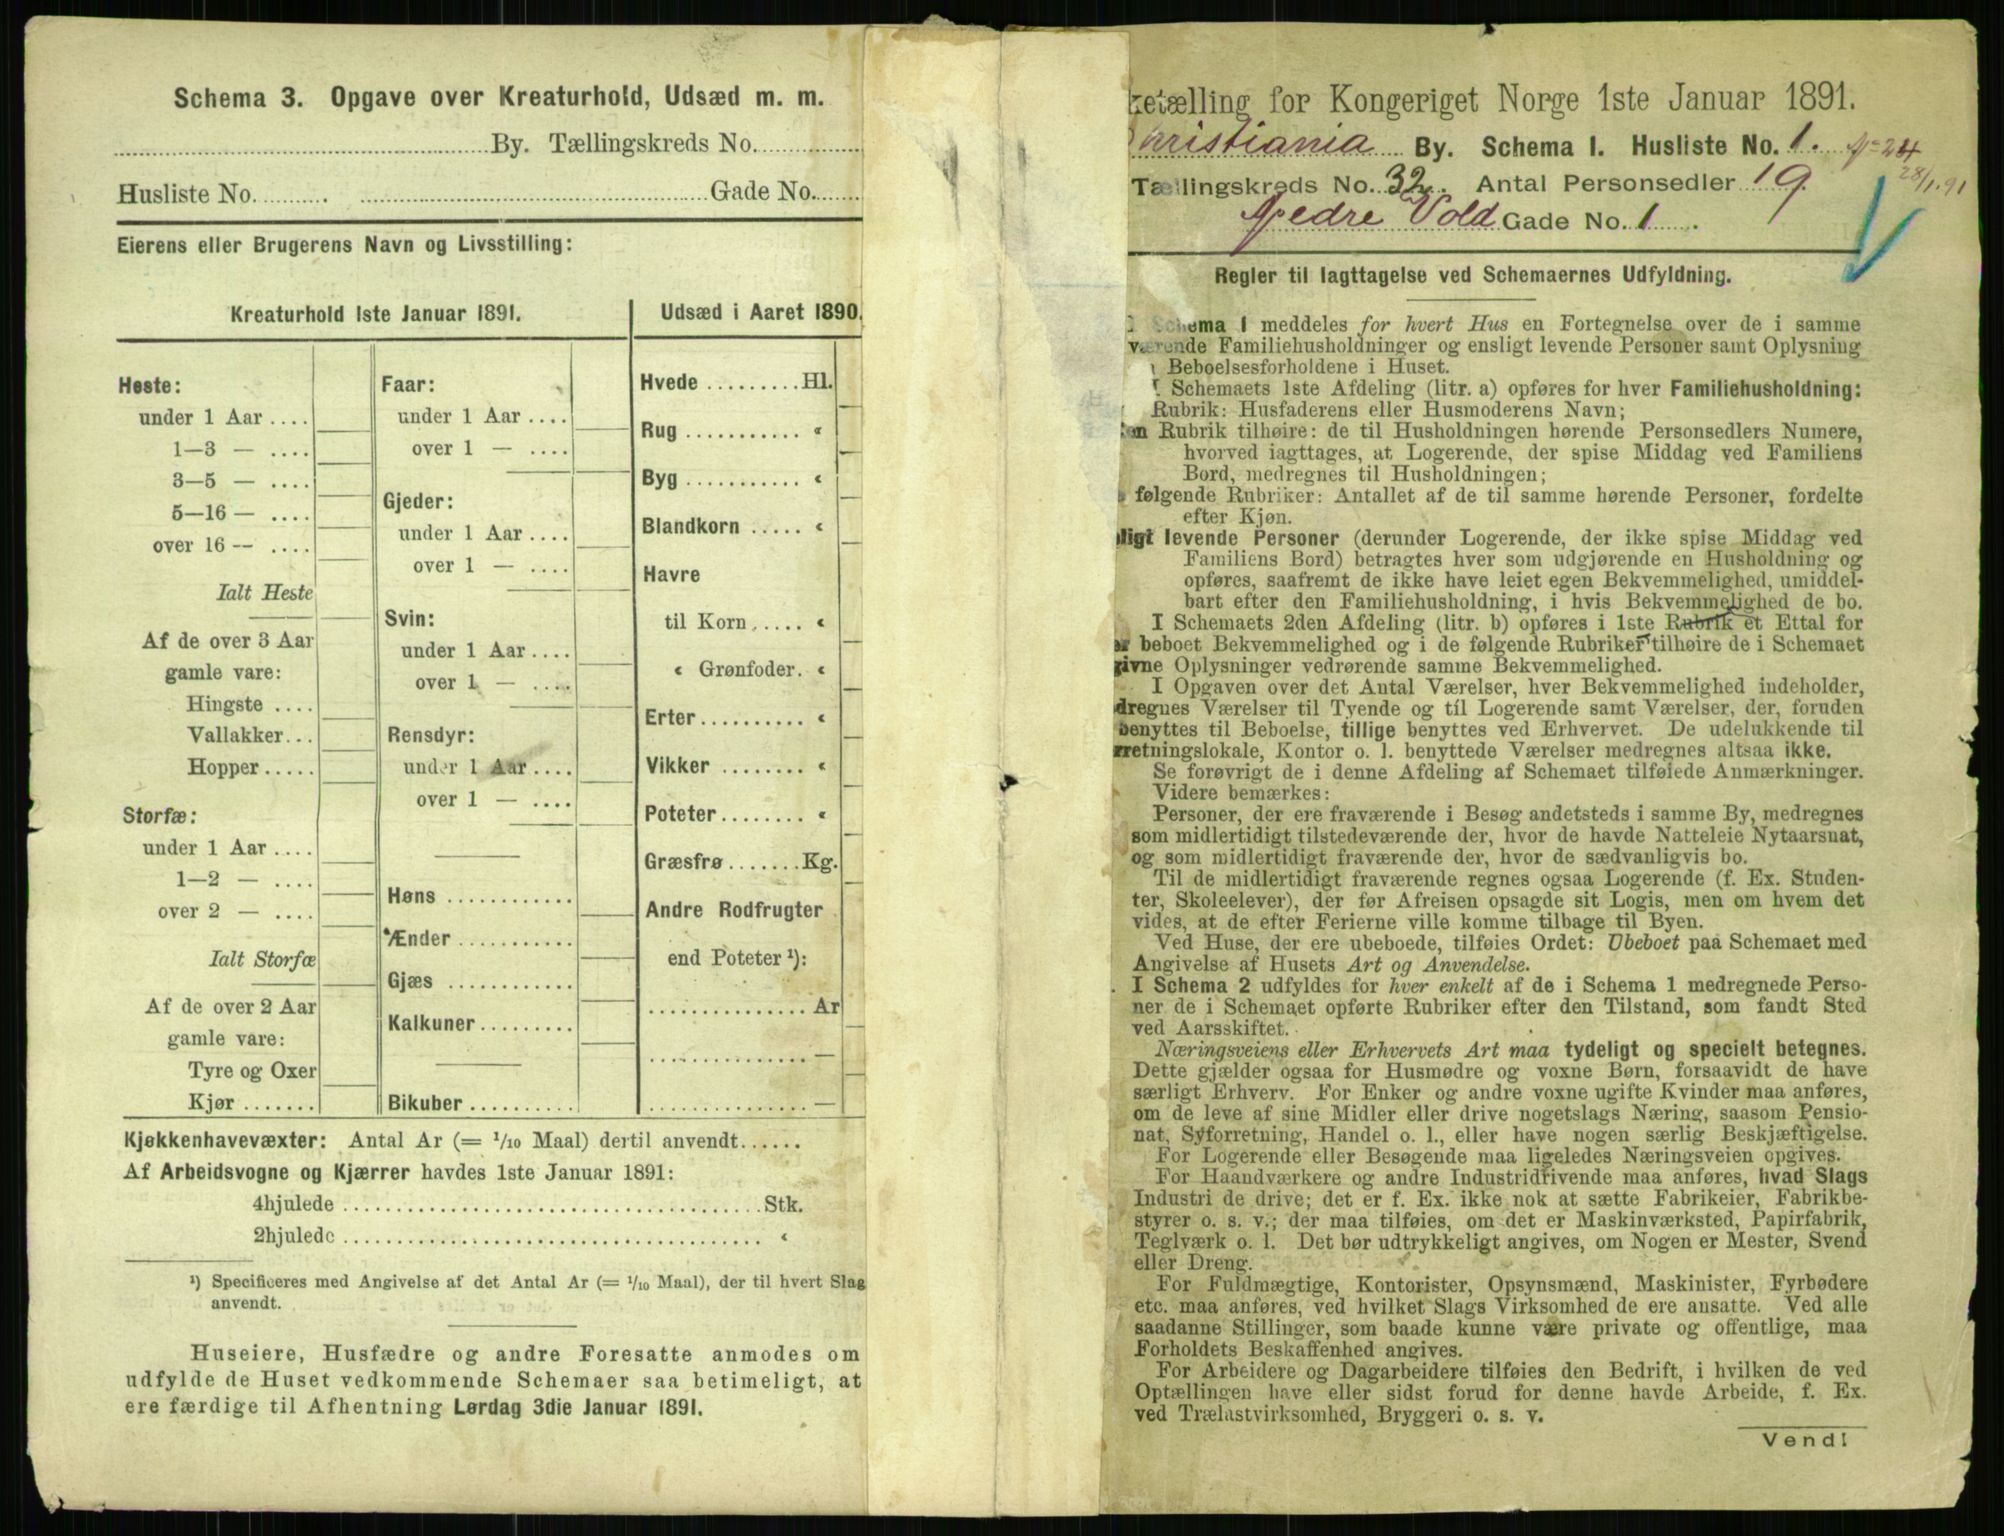 Schema 3. Opgave over Kreaturhold, Udsæd m. m.
By. Tællingskreds No.
Husliste No. Gade No.
Eierens eller Brugerens Navn og Livsstilling:
Kreaturhold 1ste Januar 1891.
Heste:
under 1 Aar ....
1—3 — ....
3—5 — ....
5—16 — ....
over 16 — ....
Ialt Heste
Af de over 3 Aar
gamle vare:
Hingste ....
Vallakker...
Hopper .....
Storfæ:
under 1 Aar ....
1—2 — ....
over 2 — ....
Ialt Storfæ
Af de over 2 Aar
gamle vare:
Tyre og Oxer
Kjør .......
Faar:
under 1 Aar ....
over 1 — ....
Gjeder:
under 1 Aar ....
over 1 — ....
Svin:
under 1 Aar ....
over 1 — ....
Rensdyr:
under 1 Aar ....
over 1 — ....
Høns ............
Ænder ...........
Gjæs ............
Kalkuner.........
Bikuber ..........
Udsæd i Aaret 1890.
Hvede .........Hl.
Rug ........... «
Byg ........... «
Blandkorn ..... «
Havre
til Korn..... «
« Grønfoder. «
Erter.......... «
Vikker ........ «
Poteter........ «
Græsfrø .......Kg.
Andre Rodfrugter
end Poteter ¹):
...............Ar
...............—
...............—
Kjøkkenhavevæxter: Antal Ar (= 1/10 Maal) dertil anvendt......
Af Arbeidsvogne og Kjærrer havdes 1ste Januar 1891:
4hjulede ........................................Stk.
2hjulede ........................................ «
¹) Specificeres med Angivelse af det Antal Ar (= 1/10 Maal), der til hvert Slag
anvendt.
Huseiere, Husfædre og andre Foresatte anmodes om
udfylde de Huset vedkommende Schemaer saa betimeligt, at
ere færdige til Afhentning Lørdag 3die Januar 1891.
ketælling for Kongeriget Norge 1ste Januar 1891.
hristiania By. Schema I. Husliste No. 1.
28/1.91
Tællingskreds No. 32. Antal Personsedler 19
Nedre Vold Gade No. 1
Regler til Iagttagelse ved Schemaernes Udfyldning.
Schema 1 meddeles for hvert Hus en Fortegnelse over de i samme
værende Familiehusholdninger og ensligt levende Personer samt Oplysning
Beboelsesforholdene i Huset.
I Schemaets 1ste Afdeling (litr. a) opføres for hver Familiehusholdning:
Rubrik: Husfaderens eller Husmoderens Navn;
en Rubrik tilhøire: de til Husholdningen hørende Personsedlers Numere,
hvorved iagttages, at Logerende, der spise Middag ved Familiens
Bord, medregnes til Husholdningen;
følgende Rubriker: Antallet af de til samme hørende Personer, fordelte
efter Kjøn.
ligt levende Personer (derunder Logerende, der ikke spise Middag ved
Familiens Bord) betragtes hver som udgjørende en Husholdning og
opføres, saafremt de ikke have leiet egen Bekvemmelighed, umiddel-
bart efter den Familiehusholdning, i hvis Bekvemmelighed de bo.
I Schemaets 2den Afdeling (litr. b) opføres i 1ste Rubrik et Ettal for
beboet Bekvemmelighed og i de følgende Rubriker tilhøire de i Schemaet
givne Oplysninger vedrørende samme Bekvemmelighed.
I Opgaven over det Antal Værelser, hver Bekvemmelighed indeholder,
dregnes Værelser til Tyende og til Logerende samt Værelser, der, foruden
benyttes til Beboelse, tillige benyttes ved Erhvervet. De udelukkende til
rretningslokale, Kontor o. l. benyttede Værelser medregnes altsaa ikke.
Se forøvrigt de i denne Afdeling af Schemaet tilføiede Anmærkninger.
Videre bemærkes:
Personer, der ere fraværende i Besøg andetsteds i samme By, medregnes
som midlertidigt tilstedeværende der, hvor de havde Natteleie Nytaarsnat,
og som midlertidigt fraværende der, hvor de sædvanligvis bo.
Til de midlertidigt fraværende regnes ogsaa Logerende (f. Ex. Studen-
ter, Skoleelever), der før Afreisen opsagde sit Logis, men om hvem det
vides, at de efter Ferierne ville komme tilbage til Byen.
Ved Huse, der ere ubeboede, tilføies Ordet: Ubeboet paa Schemaet med
Angivelse af Husets Art og Anvendelse.
I Schema 2 udfyldes for hver enkelt af de i Schema 1 medregnede Perso-
ner de i Schemaet opførte Rubriker efter den Tilstand, som fandt Sted
ved Aarsskiftet.
Næringsveiens eller Erhvervets Art maa tydeligt og specielt betegnes.
Dette gjælder ogsaa for Husmødre og voxne Børn, forsaavidt de have
særligt Erhverv. For Enker og andre voxne ugifte Kvinder maa anføres,
om de leve af sine Midler eller drive nogetslags Næring, saasom Pensio-
nat, Syforretning, Handel o. l., eller have nogen særlig Beskjæftigelse.
For Logerende eller Besøgende maa ligeledes Næringsveien opgives.
For Haandværkere og andre Industridrivende maa anføres, hvad Slags
Industri de drive; det er f. Ex. ikke nok at sætte Fabrikeier, Fabrikbe-
styrer o. s. v.; der maa tilføies, om det er Maskinværksted, Papirfabrik,
Teglværk o. l. Det bør udtrykkeligt angives, om Nogen er Mester, Svend
eller Dreng.
For Fuldmægtige, Kontorister, Opsynsmænd, Maskinister, Fyrbødere
etc. maa anføres, ved hvilket Slags Virksomhed de ere ansatte. Ved alle
saadanne Stillinger, som baade kunne være private og offentlige, maa
Forholdets Beskaffenhed angives.
For Arbeidere og Dagarbeidere tilføies den Bedrift, i hvilken de ved
Optællingen have eller sidst forud for denne havde Arbeide, f. Ex.
ved Trælastvirksomhed, Bryggeri o. s. v.
Vend!